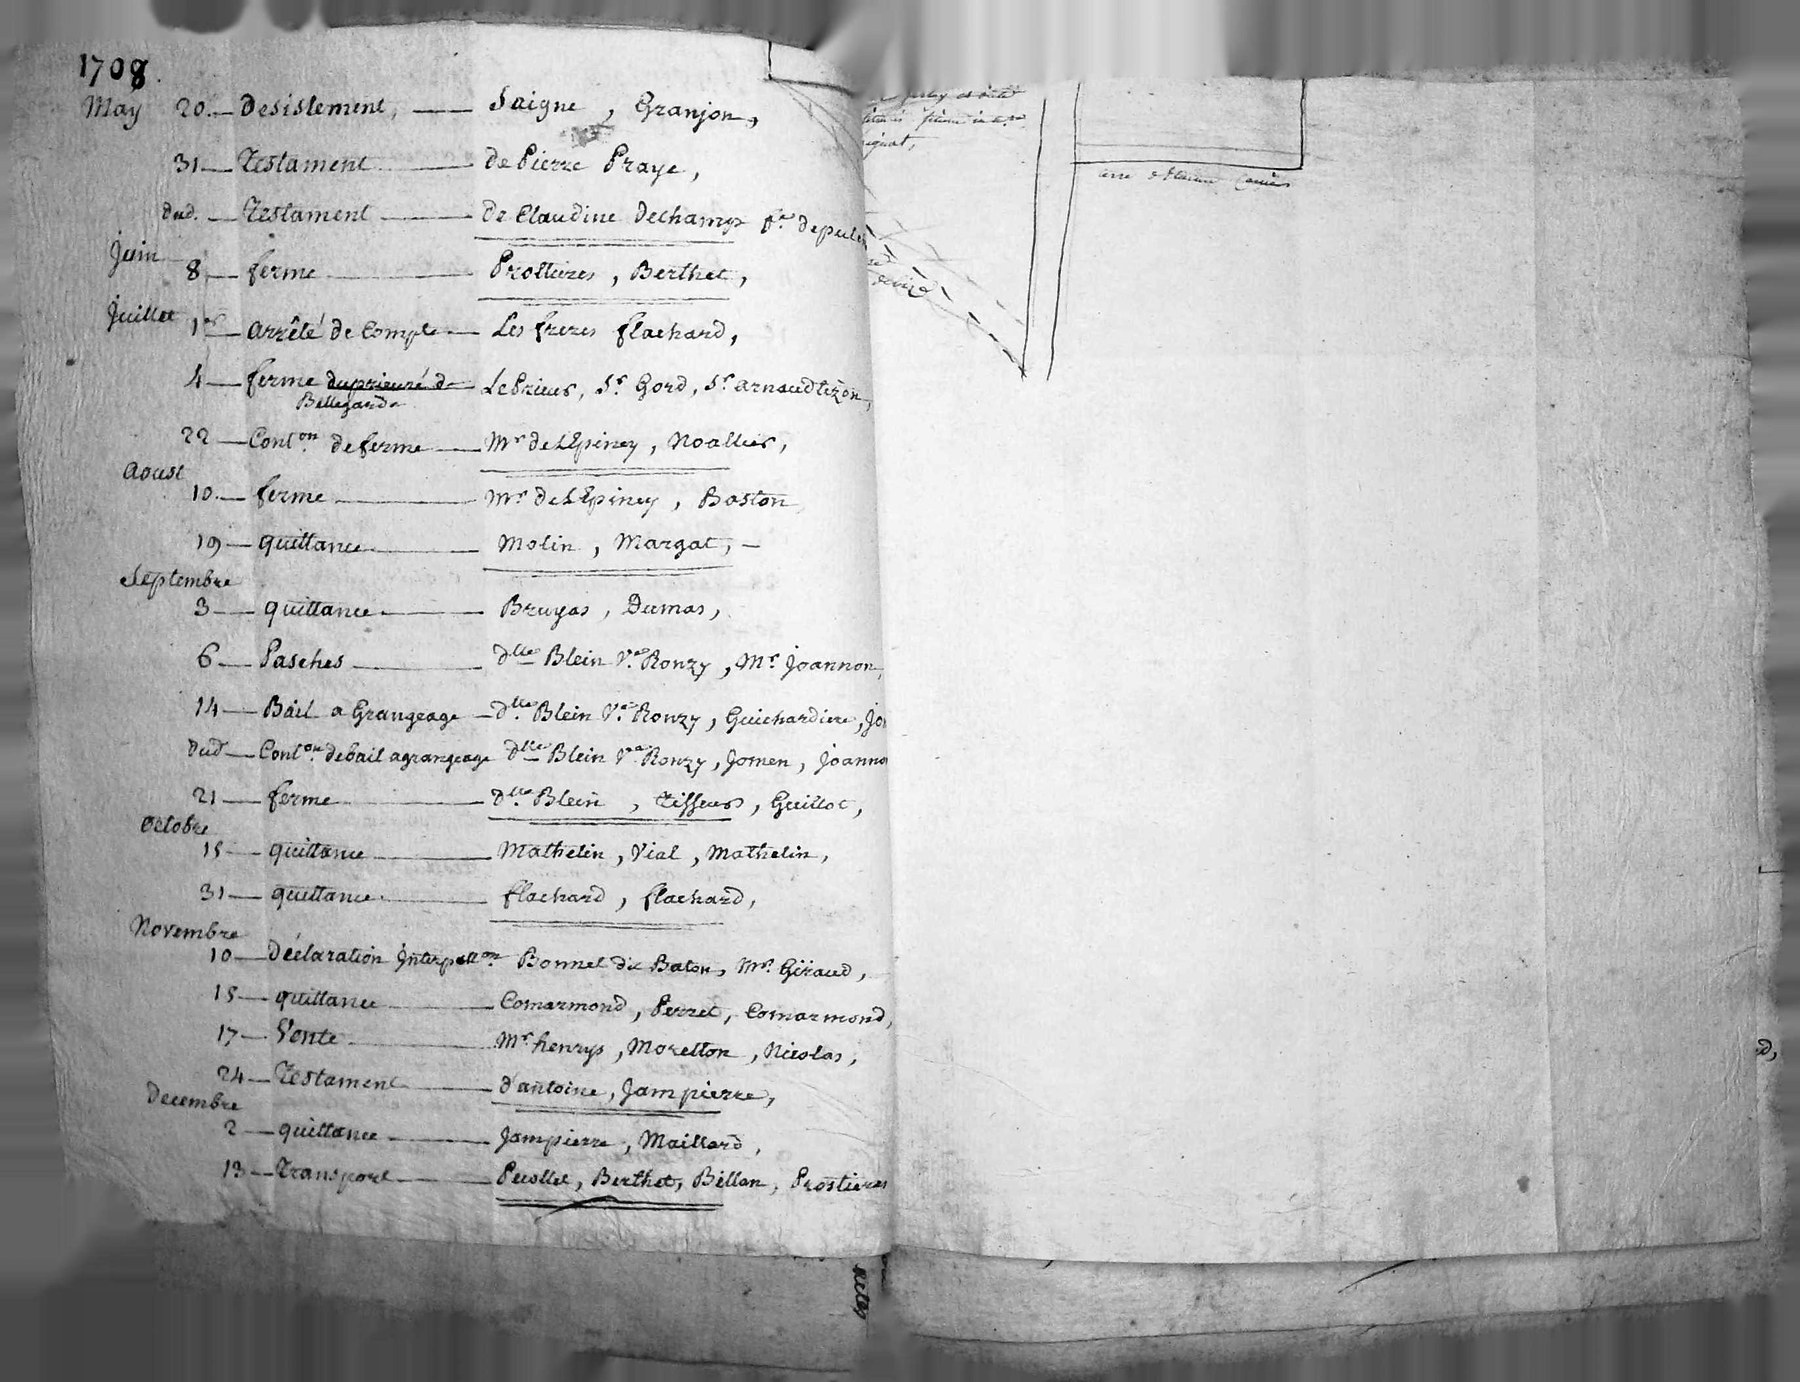 1708.
May 20.— Desistement, — Saigne, Granjon,
31— Testament — De Pierre Praye,
Dud. — Testament — De Claudine Dechamps
Juin
8 — ferme — Prostieres, Berthet,
Juillet
1er — arrêté de Compte — Les freres flachard,
4 — ferme duprieuré de Bellegarde — Le Prieur, Sr Gord, Sr arnaudtizon,
22 — Conton de ferme — Mr de LEpiney, Noallier,
Aoust
10.— ferme — Mr de LEpiney, Baston
19 — quittance — Molin, Margat, —
Septembre
3 — quittance — Bruyas, Dumas,
6 — Pasches — dlle Blein Ve Ronzy, Mr Joannon,
14 — Bail a Grangeage — dlle Blein Ve Ronzy, Guichardiere,
Dud — Conton de bail a grangeage dlle Blein Ve Ronzy, Jomen, Joanno
21 — ferme — dlle Blein, Tisseur, Guillot,
Octobre
15 — quittance — Mathelin, Vial, Mathelin,
31 — quittance — flachard, flachard,
Novembre
10 — Déclaration Bonnet dit Baton, Mr Giraud,
15 — quittance — Comarmond, Perret, Comarmond,
17 — Vente — Mr henrys, Moretton, Nicolas,
24 — Testament — d'antoine, Jampierre,
Decembre
2 — quittance — Jampierre, Maillard,
13 — Transport — Berthet, Billon, Prostieres